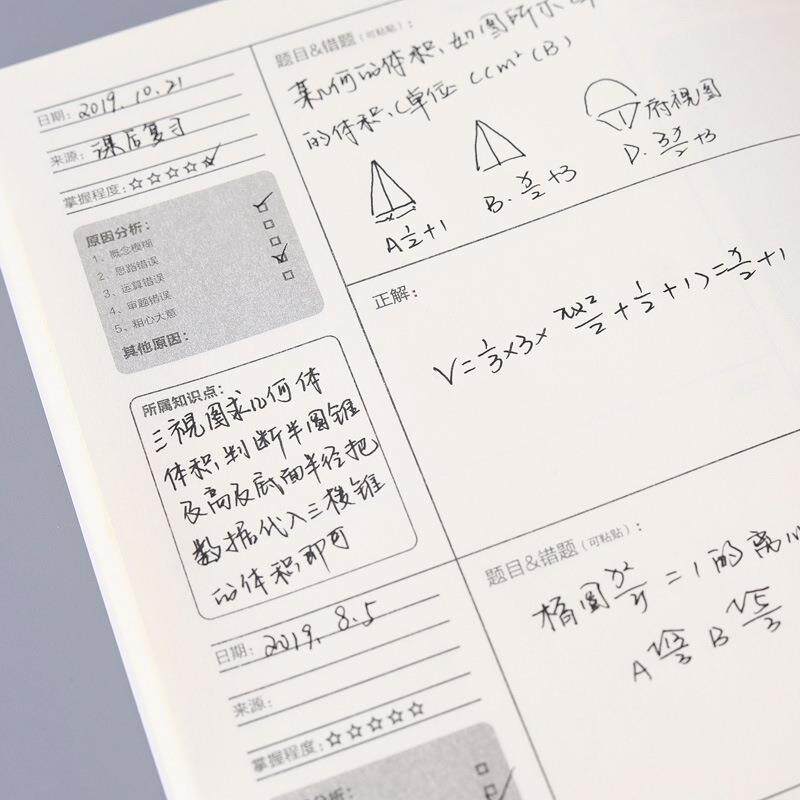 题目&错题（可粘贴）：
某几何的体积，如图所示
的体积，（单位 ccm²（B）
府视图
A ½+1
B. x/2+3
D. 3x/2+3
日期：2019.10.21
来源：课后复习
掌握程度：☆☆☆☆☆
原因分析：
1、概念模糊
2、思路错误
3、运算错误
4、审题错误
5、粗心大意
其他原因：
正解：
V=1/3×3×πx²/2+1/2+1)=x/2+1
所属知识点：
三视图求几何体
体积，判断半圆锥
及高及底面半径把
数据代入三棱锥
的体积即可
题目&错题（可粘贴）：
椭圆 =1的离心
A √13/3 B √5/3
日期：2019. 8.5
来源：
掌握程度：☆☆☆☆☆